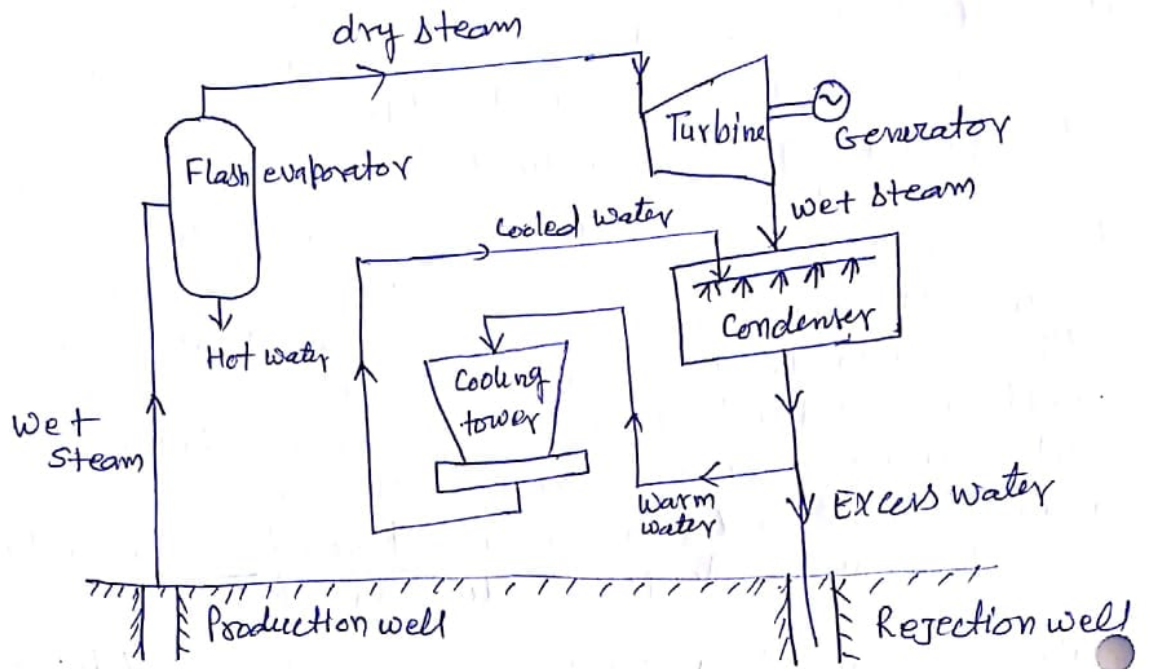 dry steam
Turbine
Generator
Flash evaporator
wet steam
Cooled water
Condenser
Hot water
Cooling
tower
Wet
Steam
Warm
water
Excess water
Production well
Rejection well